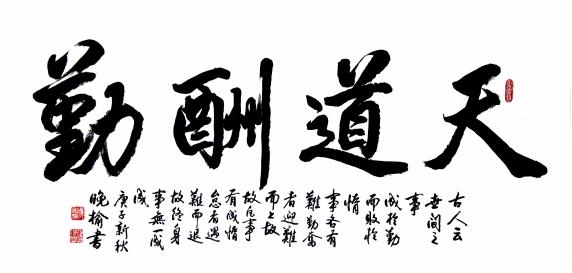 天道酬勤
古人云
世間之
事
成於勤
而敗於
惰
事各有
難勤奮
者迎難
而上故
故凡事
有成惰
怠者遇
難而退
故終身
事無一
成
庚子新秋
晚榆書